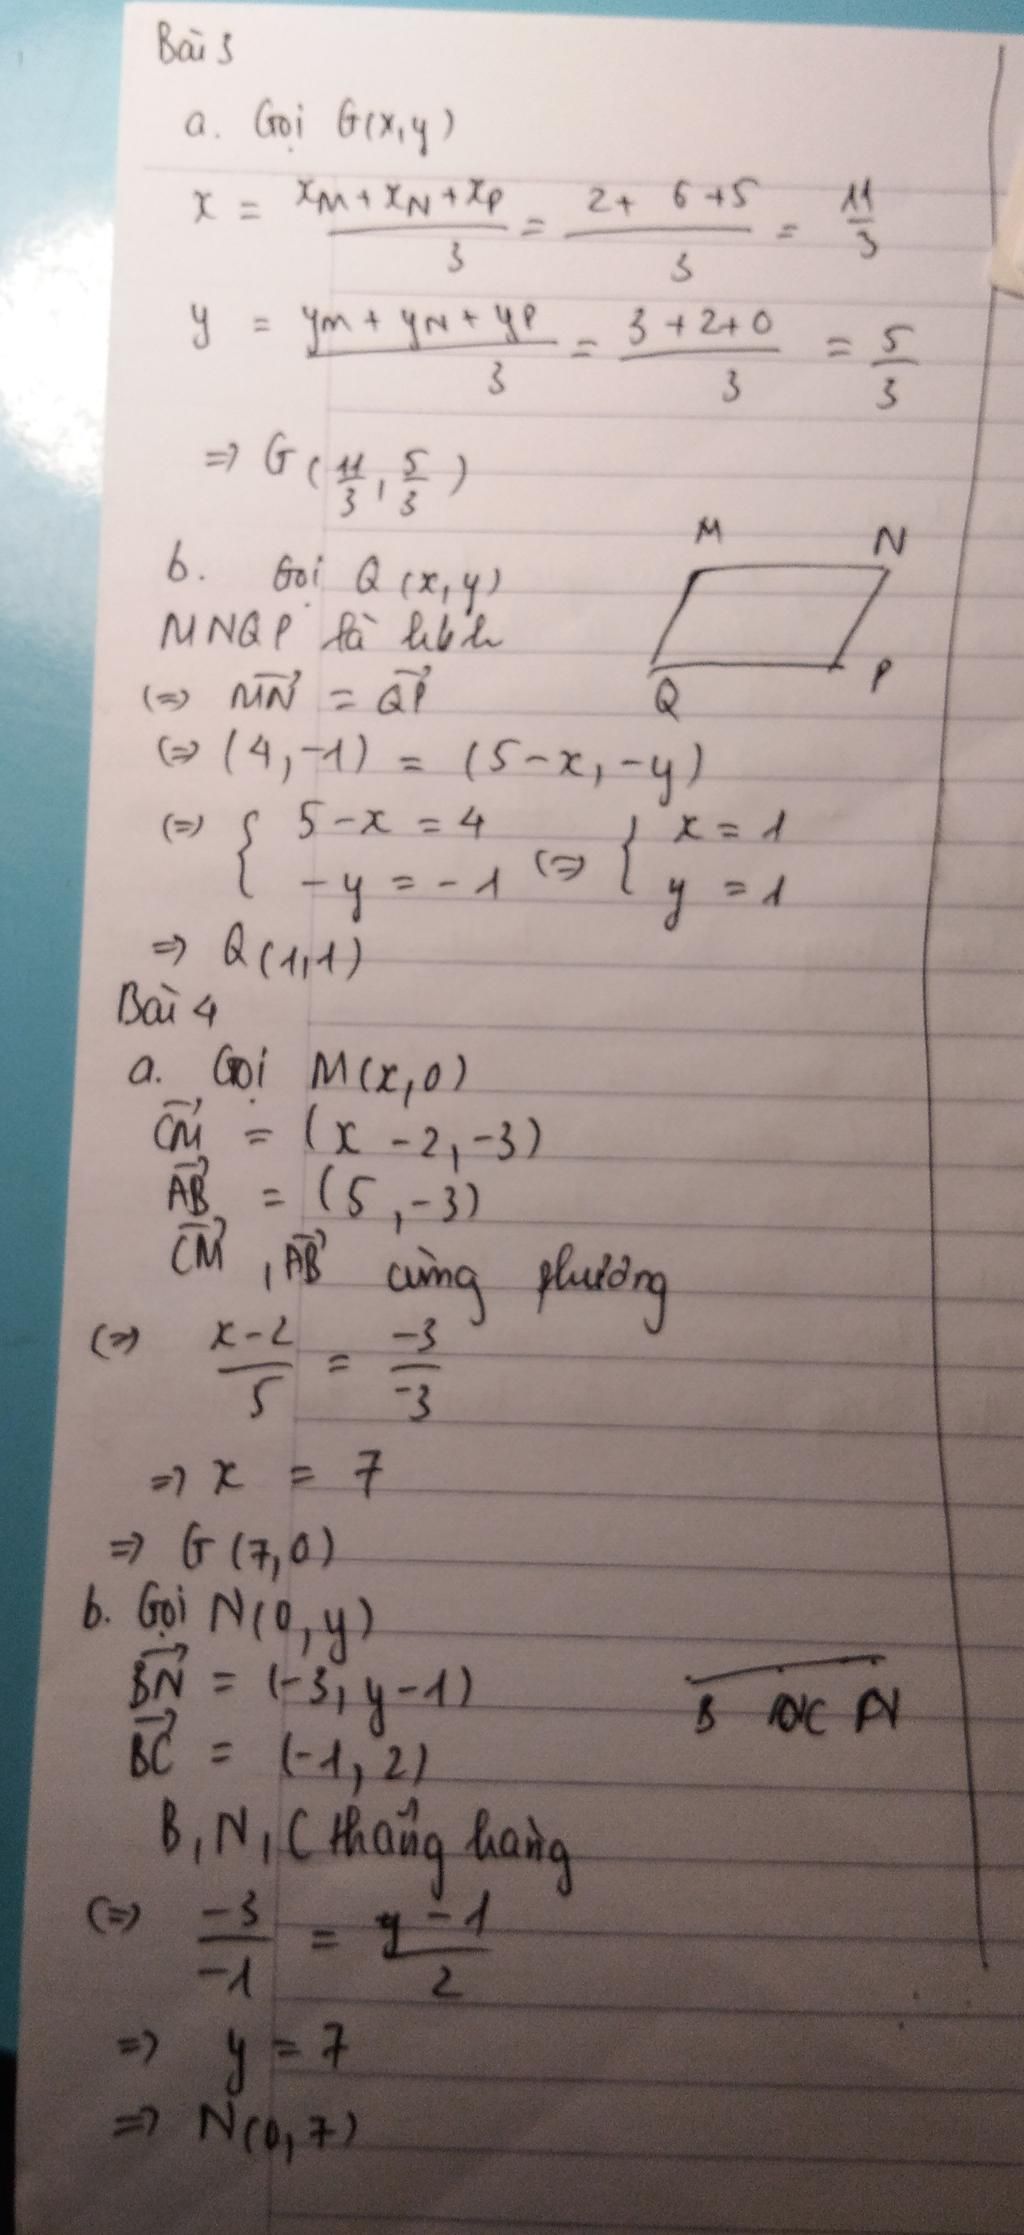 Bài 3
a. Gọi G(x,y)
x = xM + xN + xP / 3 = 2 + 6 + 5 / 3 = 11/3
y = yM + yN + yP / 3 = 3 + 2 + 0 / 3 = 5/3
=> G(11/3, 5/3)
M N
b. Gọi Q(x,y)
MNQP là hbh
Q P
(=) MN = QP
(=) (4,-1) = (5-x,-y)
(=) { 5-x = 4 (=) { x = 1
-y = -1 y = 1
=> Q(1,1)
Bài 4
a. Gọi M(x,0)
CM = (x-2,-3)
AB = (5,-3)
CM, AB cùng phương
(=) x-2 / 5 = -3 / -3
=> x = 7
=> G(7,0)
b. Gọi N(0,y)
BN = (-3,y-1)
B C N
BC = (-1,2)
B, N, C thẳng hàng
(=) -3 / -1 = y-1 / 2
=> y = 7
=> N(0,7)